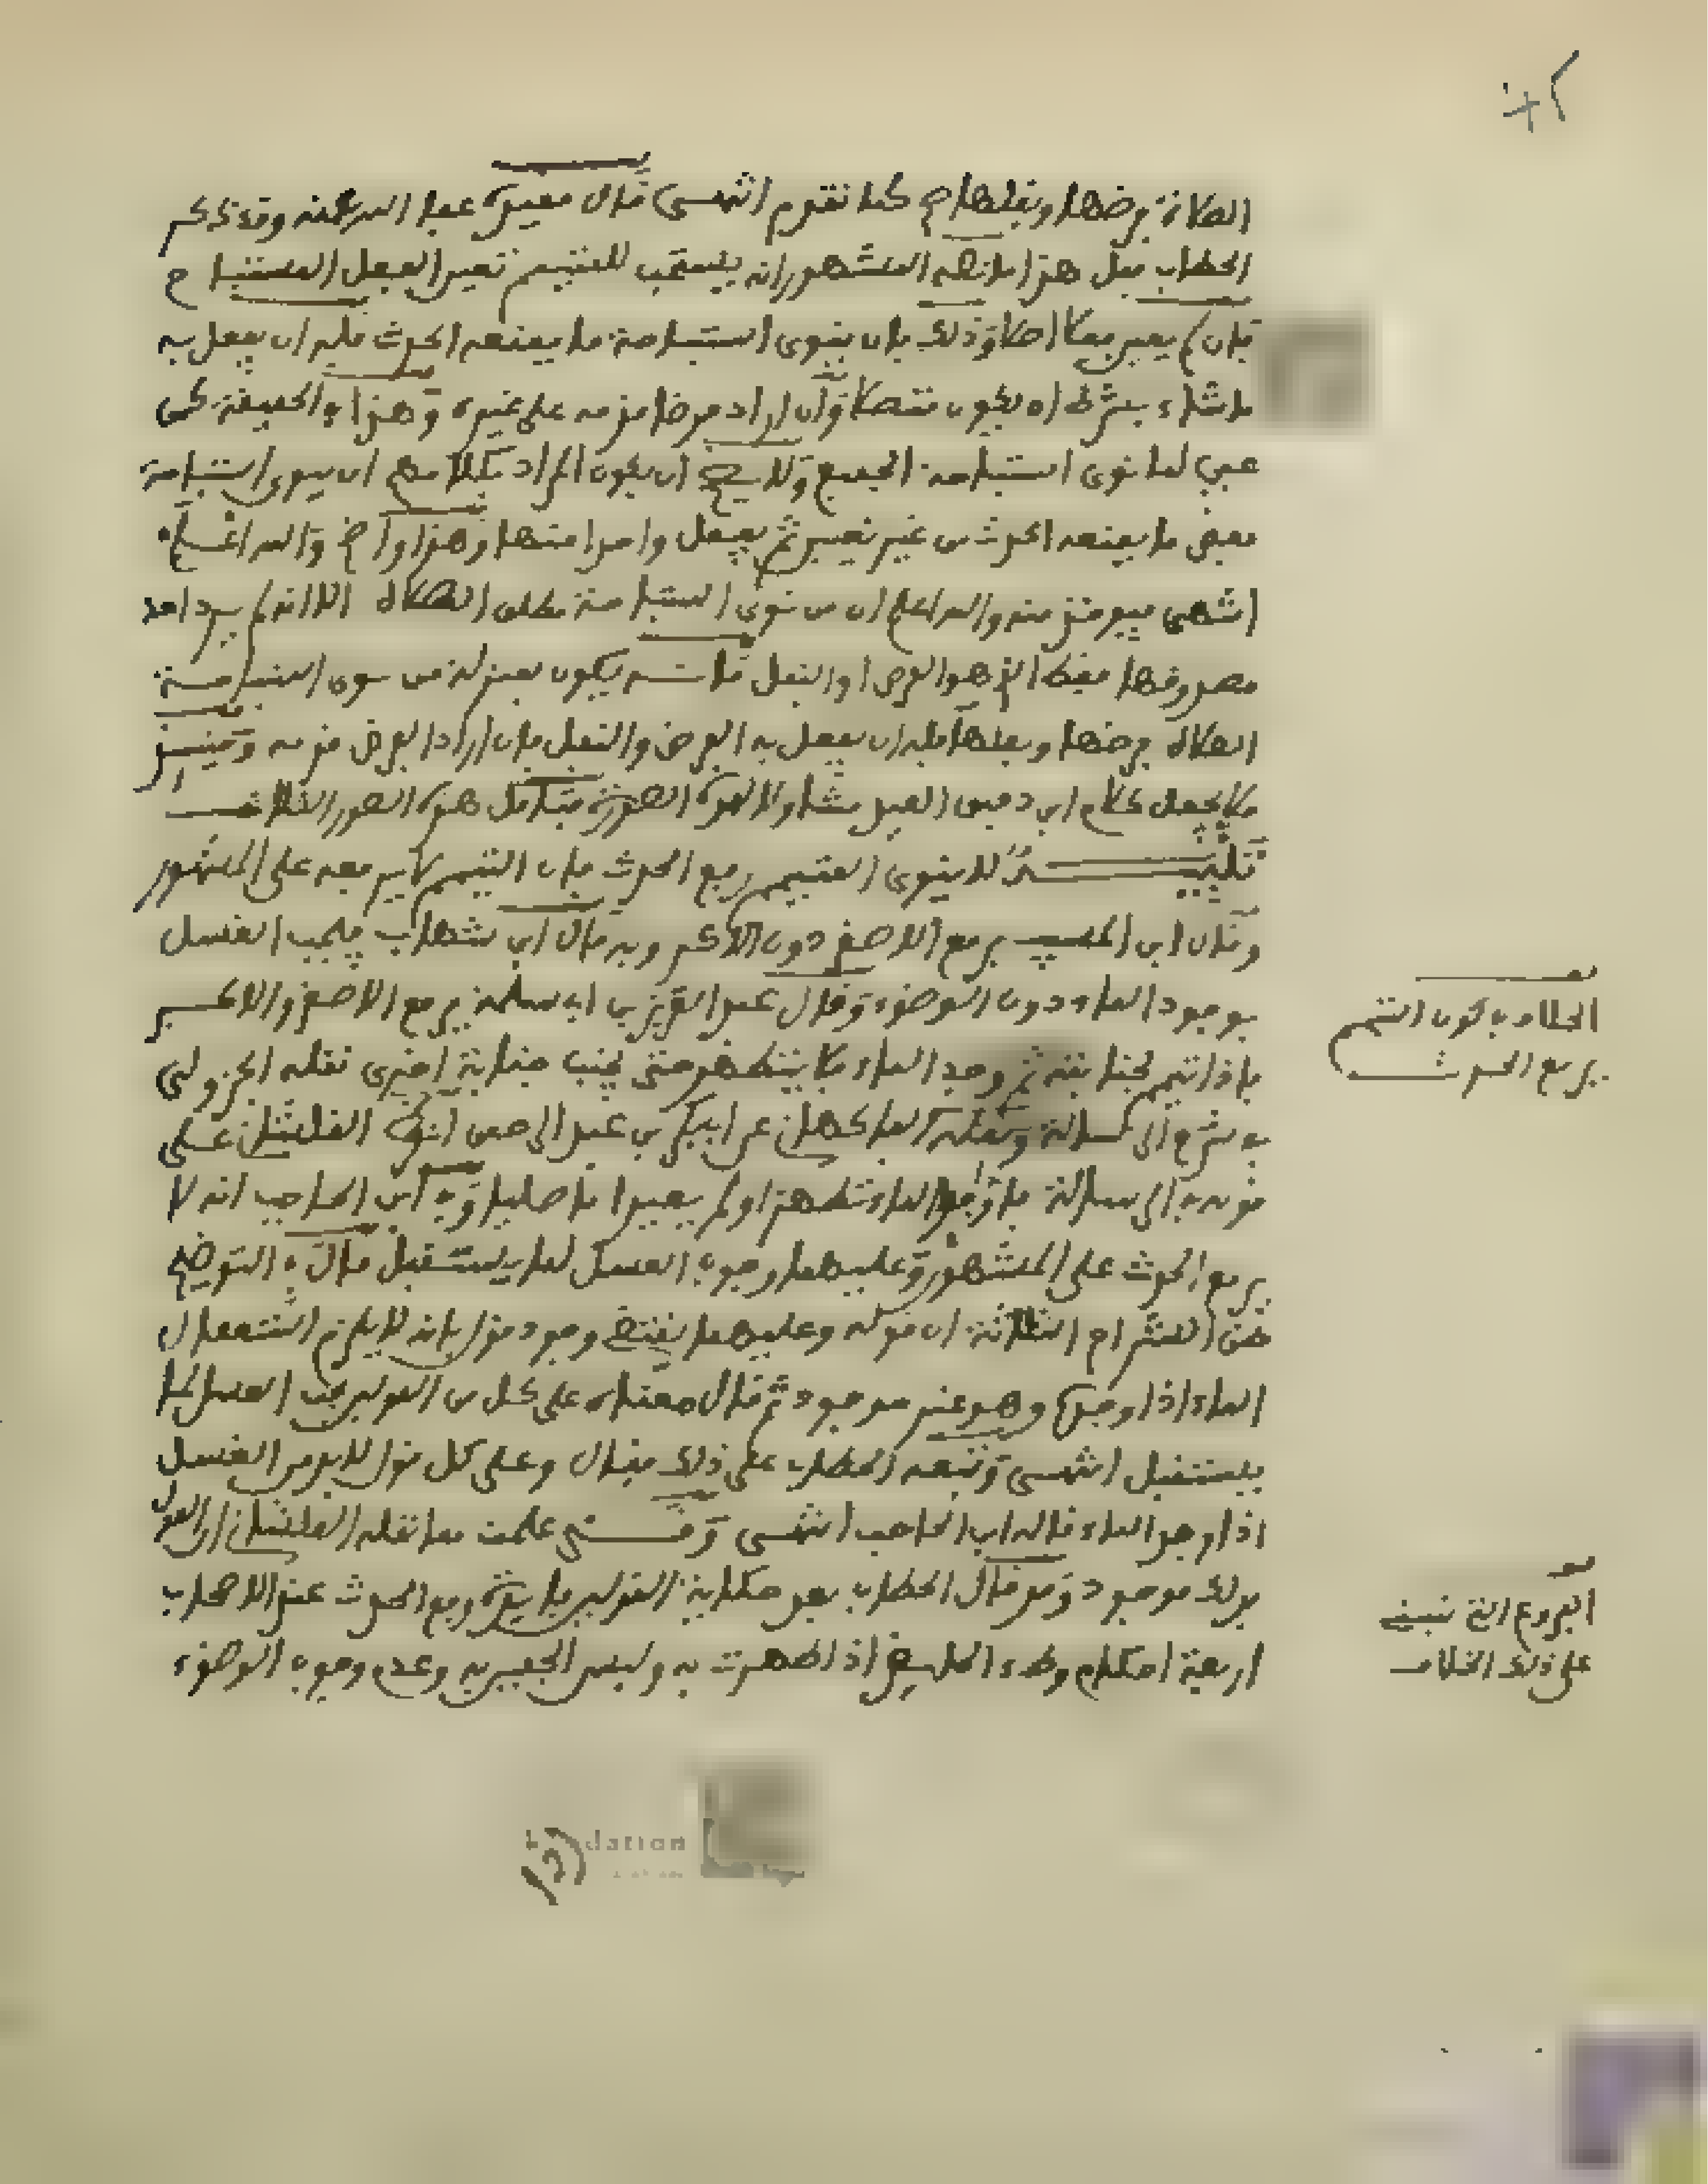 الصلاة فرضها ونفلها صح كما تقدم انتهى قال مقيده عفا الله عنه وقد ذكر
الحطاب قبل هذا ما نصه المشهور انه يستحب للمتيمم تعيين الفعل المستباح
فان لم يعين فعلا اصلا وذلك بان ينوي استباحة ما يمنعه الحدث فله ان يفعل به
ما شاء بشرط ان يكون متصلا وان اراد فرضا قدمه على غيره وهذا في الحقيقة كمن
لما نوى استباحة الجميع ولا يصح ان يكون المراد بكلامهم ان ينوي استباحة
بعض ما يمنعه الحدث من غير تعيين ثم يفعل واحدا منها وهذا واضح والله اعلم
انتهى فيوخذ منه والله اعلم ان من نوى استباحة مطلق الصلاة الا انه لم يرد احد
او النفل فانه يكون بمنزلة من نوى استباحة
الصلاة فرضها ونفلها فله ان يفعل به الفرض والنفل فان اراد الفرض قدمه
كلام ابن دقيق العيد الصورة فتامل هذه الصور الثلاث
تنبيه لا ينوي المتيمم رفع الحدث فان التيمم لا يرفعه على المشهور
وقال ابن المسيب يرفع الاصغر دون الاكبر وبه قال ابن شهاب فيجب الغسل
بوجود الماء دون الوضوء وقال عبد العزيز بن ابي سلمة يرفع الاصغر والاكبر
فاذا تيمم لجنابته ثم وجد الماء فلا يتطهر حتى يجنب جنابة اخرى نقله الجزولي
في شرح الرسالة ونقله عن ابي بكر بن عبد الرحمن القلشاني على
قوله في الرسالة فاذا وجدوا الماء تطهروا ولم يعيدوا ما صلوا وفي ابن الحاجب انه لا
يرفع الحدث على المشهور وعليهما وجوب الغسل لما يستقبل قال في التوضيح
ظن الشراح الثلاثة ان قوله وعليهما يقتضي وجود قول بانه لا يلزم استعمال
الماء اذا وجده وهو غير موجود ثم قال معناه على كل من القولين يجب الغسل لما
يستقبل انتهى وتبعه الحطاب على ذلك فقال وعلى كل قول لا بد من الغسل
اذا وجد الماء قاله ابن الحاجب انتهى وقد علمت مما نقله القلشاني ان القول
بذلك موجود وقد قال الحطاب بعد حكاية القولين فائدة رفع الحدث عند الاصحاب
اربعة احكام وطء الحائض اذا طهرت به ولبس الخفين به وعدم وجوب الوضوء
الخلاف في كون التيمم
يرفع الحدث
الفروع التي تنبني
على ذلك الخلاف